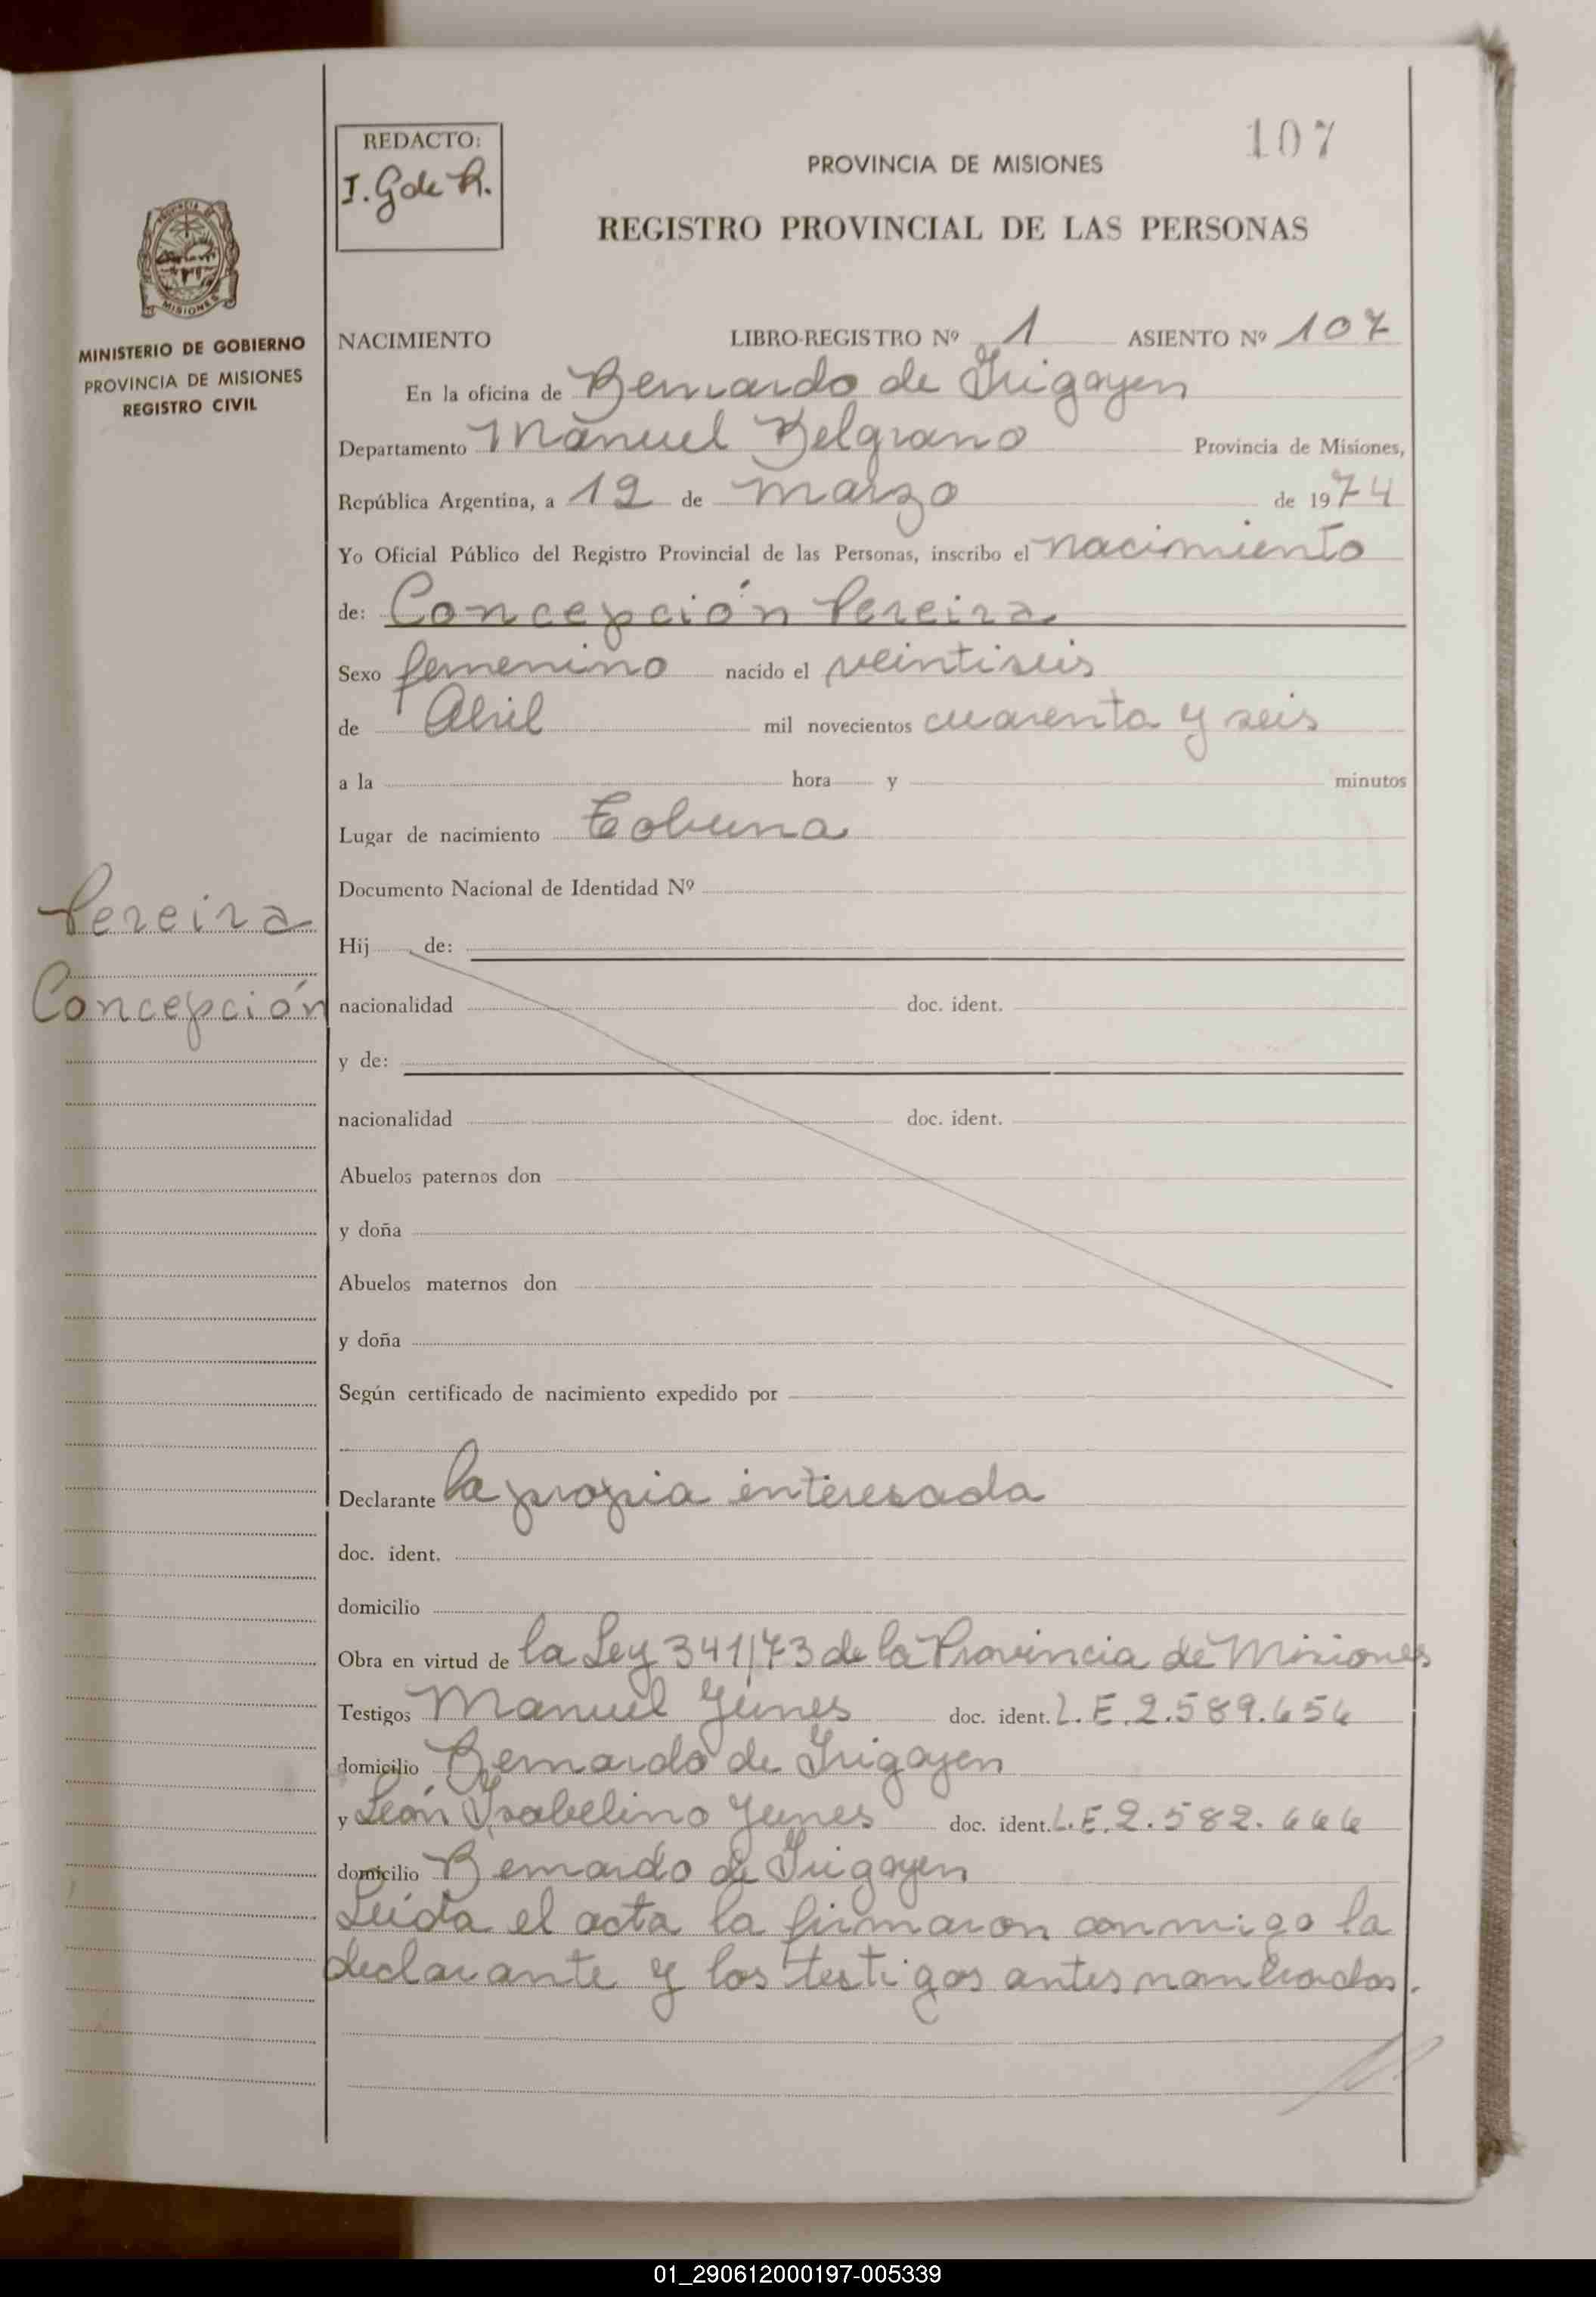 107
REDACTO:
I. G de R.
PROVINCIA DE MISIONES
REGISTRO PROVINCIAL DE LAS PERSONAS
MISIONES
MINISTERIO DE GOBIERNO
PROVINCIA DE MISIONES
REGISTRO CIVIL
NACIMIENTO LIBRO-REGISTRO Nº 1 ASIENTO Nº 107
En la oficina de Bernardo de Irigoyen
Departamento Manuel Belgrano Provincia de Misiones,
República Argentina, a 12 de marzo de 1974
Yo Oficial Público del Registro Provincial de las Personas, inscribo el nacimiento
de: Concepción Pereira
Sexo femenino nacido el veintiseis
de Abril mil novecientos cuarenta y seis
a la hora y minutos
Lugar de nacimiento Tobuna
Documento Nacional de Identidad Nº
Pereira
Concepción
Hij de:
nacionalidad doc. ident.
y de:
nacionalidad doc. ident.
Abuelos paternos don
y doña
Abuelos maternos don
y doña
Según certificado de nacimiento expedido por
Declarante la propia interesada
doc. ident.
domicilio
Obra en virtud de la Ley 341/73 de la Provincia de Misiones
Testigos Manuel Yunes doc. ident. L.E. 2.589.654
domicilio Bernardo de Irigoyen
y León Isabelino Yunes doc. ident. L.E. 2.582.666
domicilio Bernardo de Irigoyen
Leída el acta la firmaron conmigo la
declarante y los testigos antes nombrados.
01_290612000197-005339